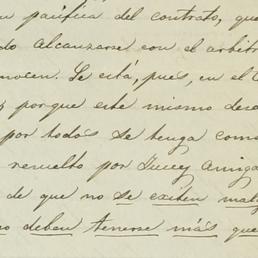 pacífica del contrato, que
do alcanzarse con el arbitr
onocen. Se está, pues, en el
porque este mismo dese
por todos se tenga como
resuelto por Juez amiga
de que no se exiten mal
o deben tenerse más que